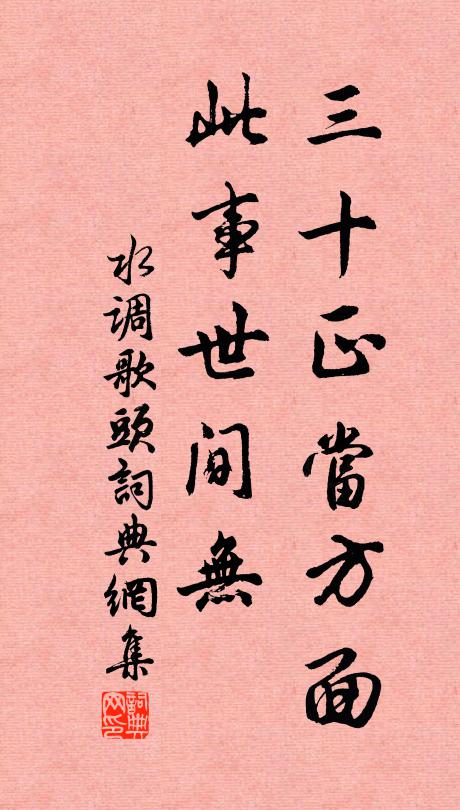 三十正當方面
此事世間無
水调歌頭詞典網集
詞典网印